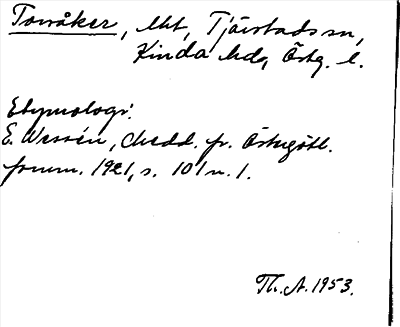 Torråker, lht, Tjärstads sn,
Kinda hd, Östg. l.
Etymologi:
E. Wessén, Medd. fr. Östergötl.
fornm. 1921, s. 101 n. 1.
Th. A. 1953.